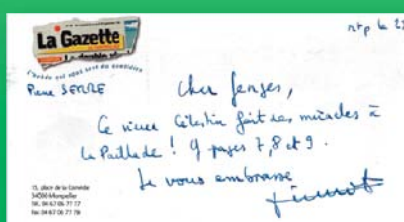 La Gazette
La double vie
L'hebdo qui vous sort du quotidien
Pierre SERRE
Mtp le 22
Cher Georges,
Ce vieux Célestin fait des miracles à
La Paillade ! Cf pages 7, 8 et 9.
Je vous embrasse
15, place de la Comédie
34000 Montpellier
Tél. 04 67 06 77 77
Fax 04 67 06 77 78